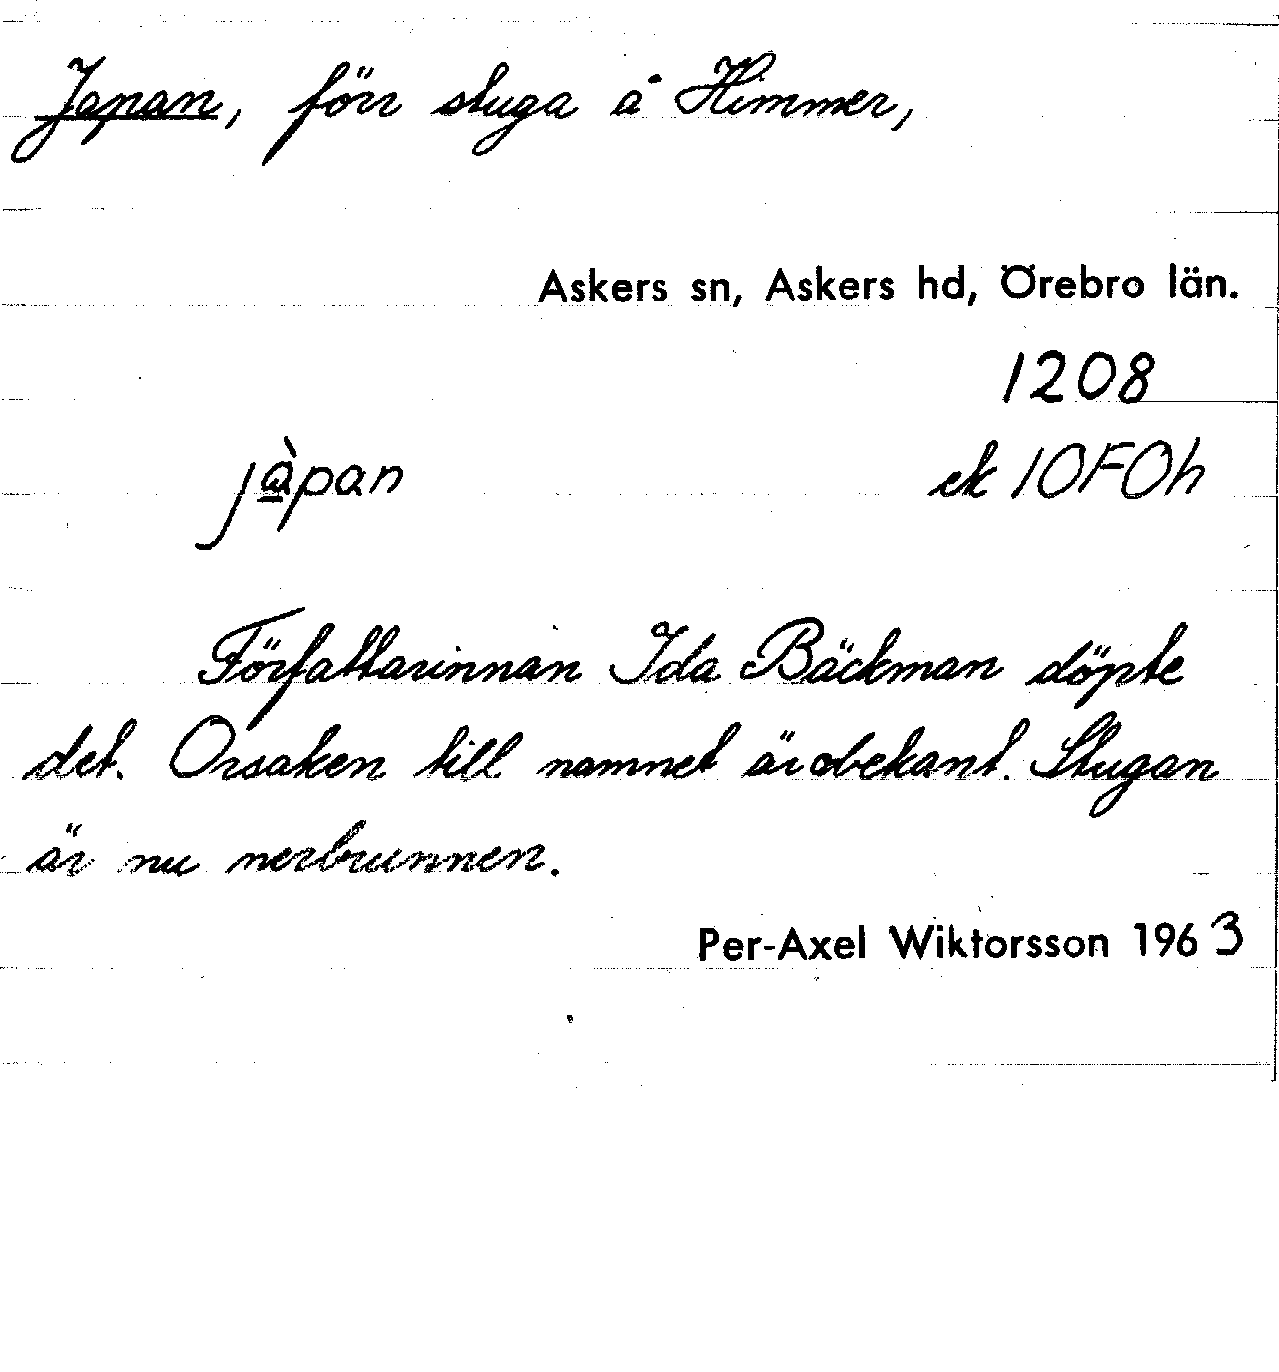 Japan, förr stuga å Himmer,
Askers sn, Askers hd, Örebro län.
1208
jàpan ek 10F0h
Författarinnan Ida Bäckman döpte
det. Orsaken till namnet är obekant. Stugan
är nu nerbrunnen.
Per-Axel Wiktorsson 1963